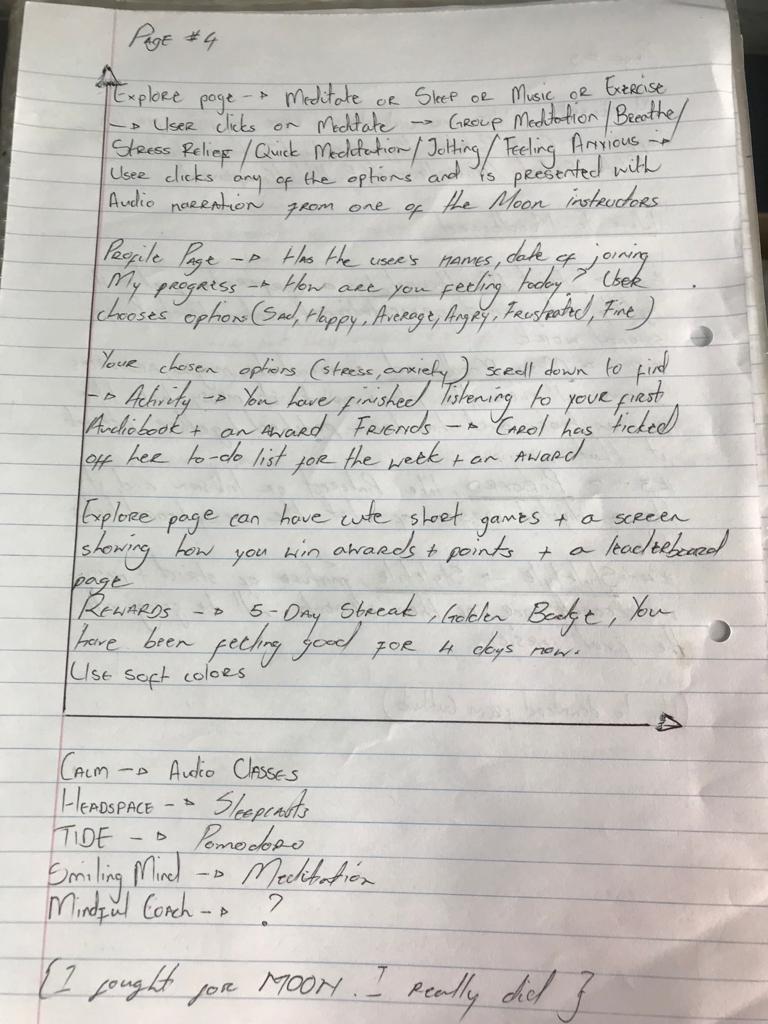 PAGE #4
Explore page -> Meditate or Sleep or Music or Exercise
-> User clicks on Meditate -> Group Meditation/Breathe/
Stress Relief/Quick Meditation/Jotting/Feeling Anxious ->
User clicks any of the options and is presented with
Audio narration from one of the Moon instructors
Profile Page -> Has the user's names, date of joining
My progress -> How are you feeling today? User
chooses option (Sad, Happy, Average, Angry, Frustrated, Fine)
Your chosen options (stress, anxiety) scroll down to find
-> Activity -> You have finished listening to your first
Audiobook + an AWARD FRIENDS -> Carol has ticked
off her to-do list for the week + an AWARD
Explore page can have cute short games + a screen
showing how you win awards + points + a leaderboard
page
REWARDS -> 5-Day Streak, Golden Badge, You
have been feeling good for 4 days now.
Use soft colors
CALM -> Audio Classes
HEADSPACE -> Sleepcasts
TIDE -> Pomodoro
Smiling Mind -> Meditation
Mindful Coach -> ?
{I fought for MOON. I really did}